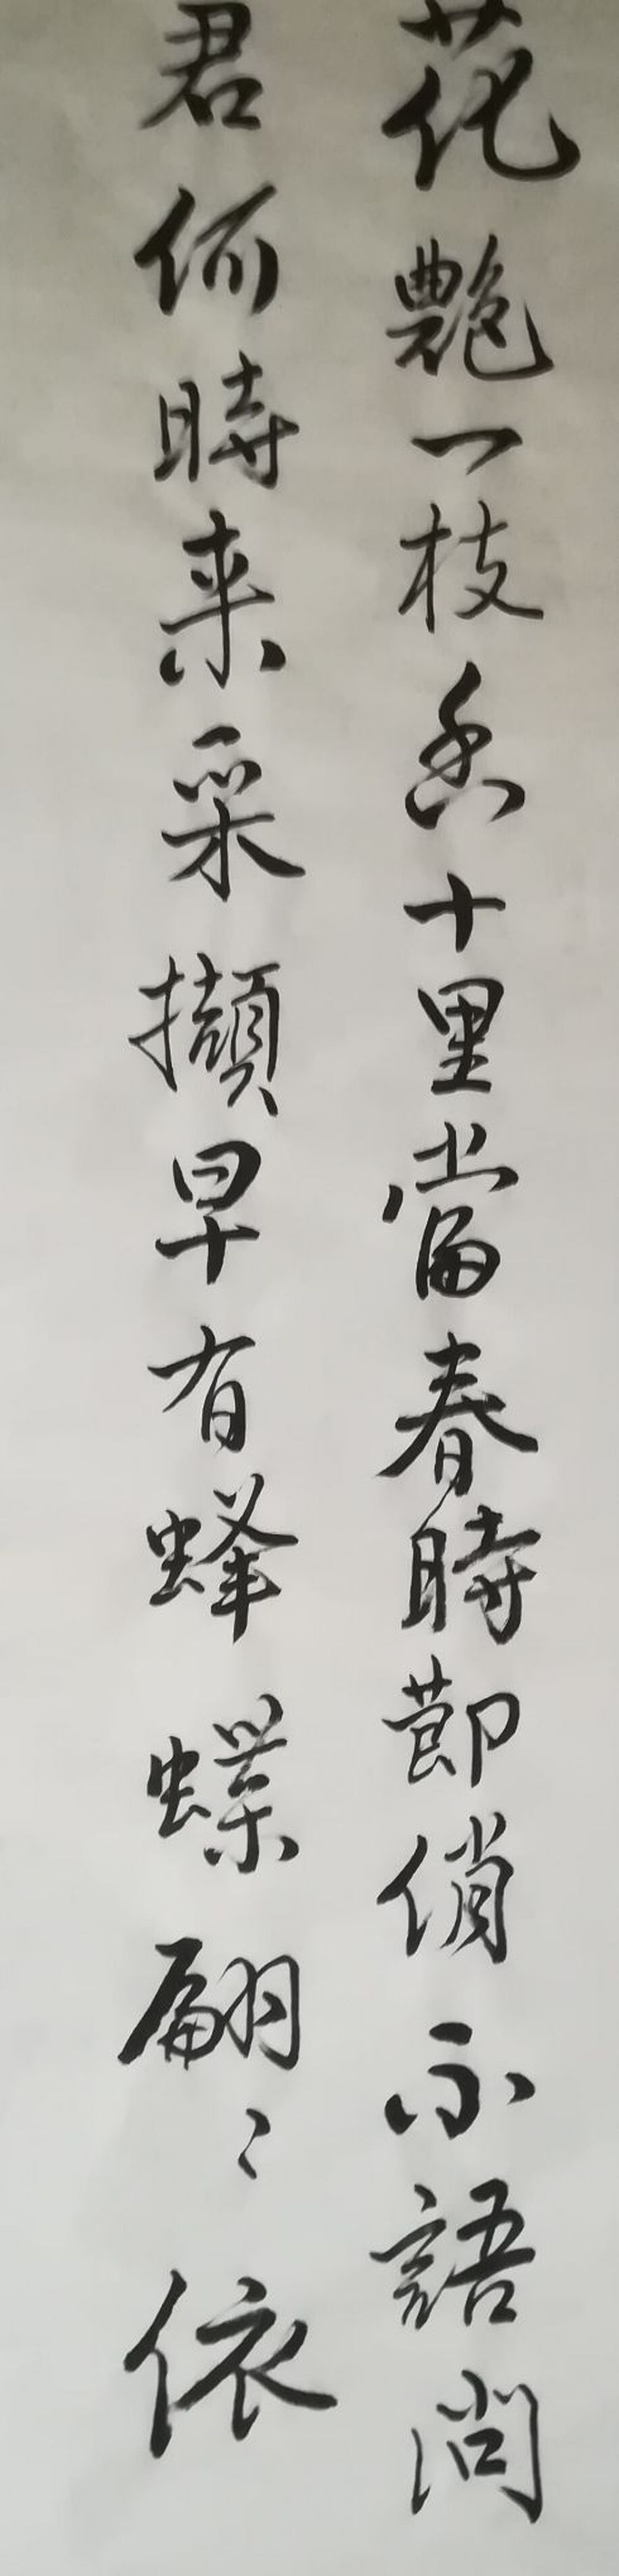 花艷一枝香十里當春時節俏不語問
君何時来采擷早有蜂蝶翩〻依